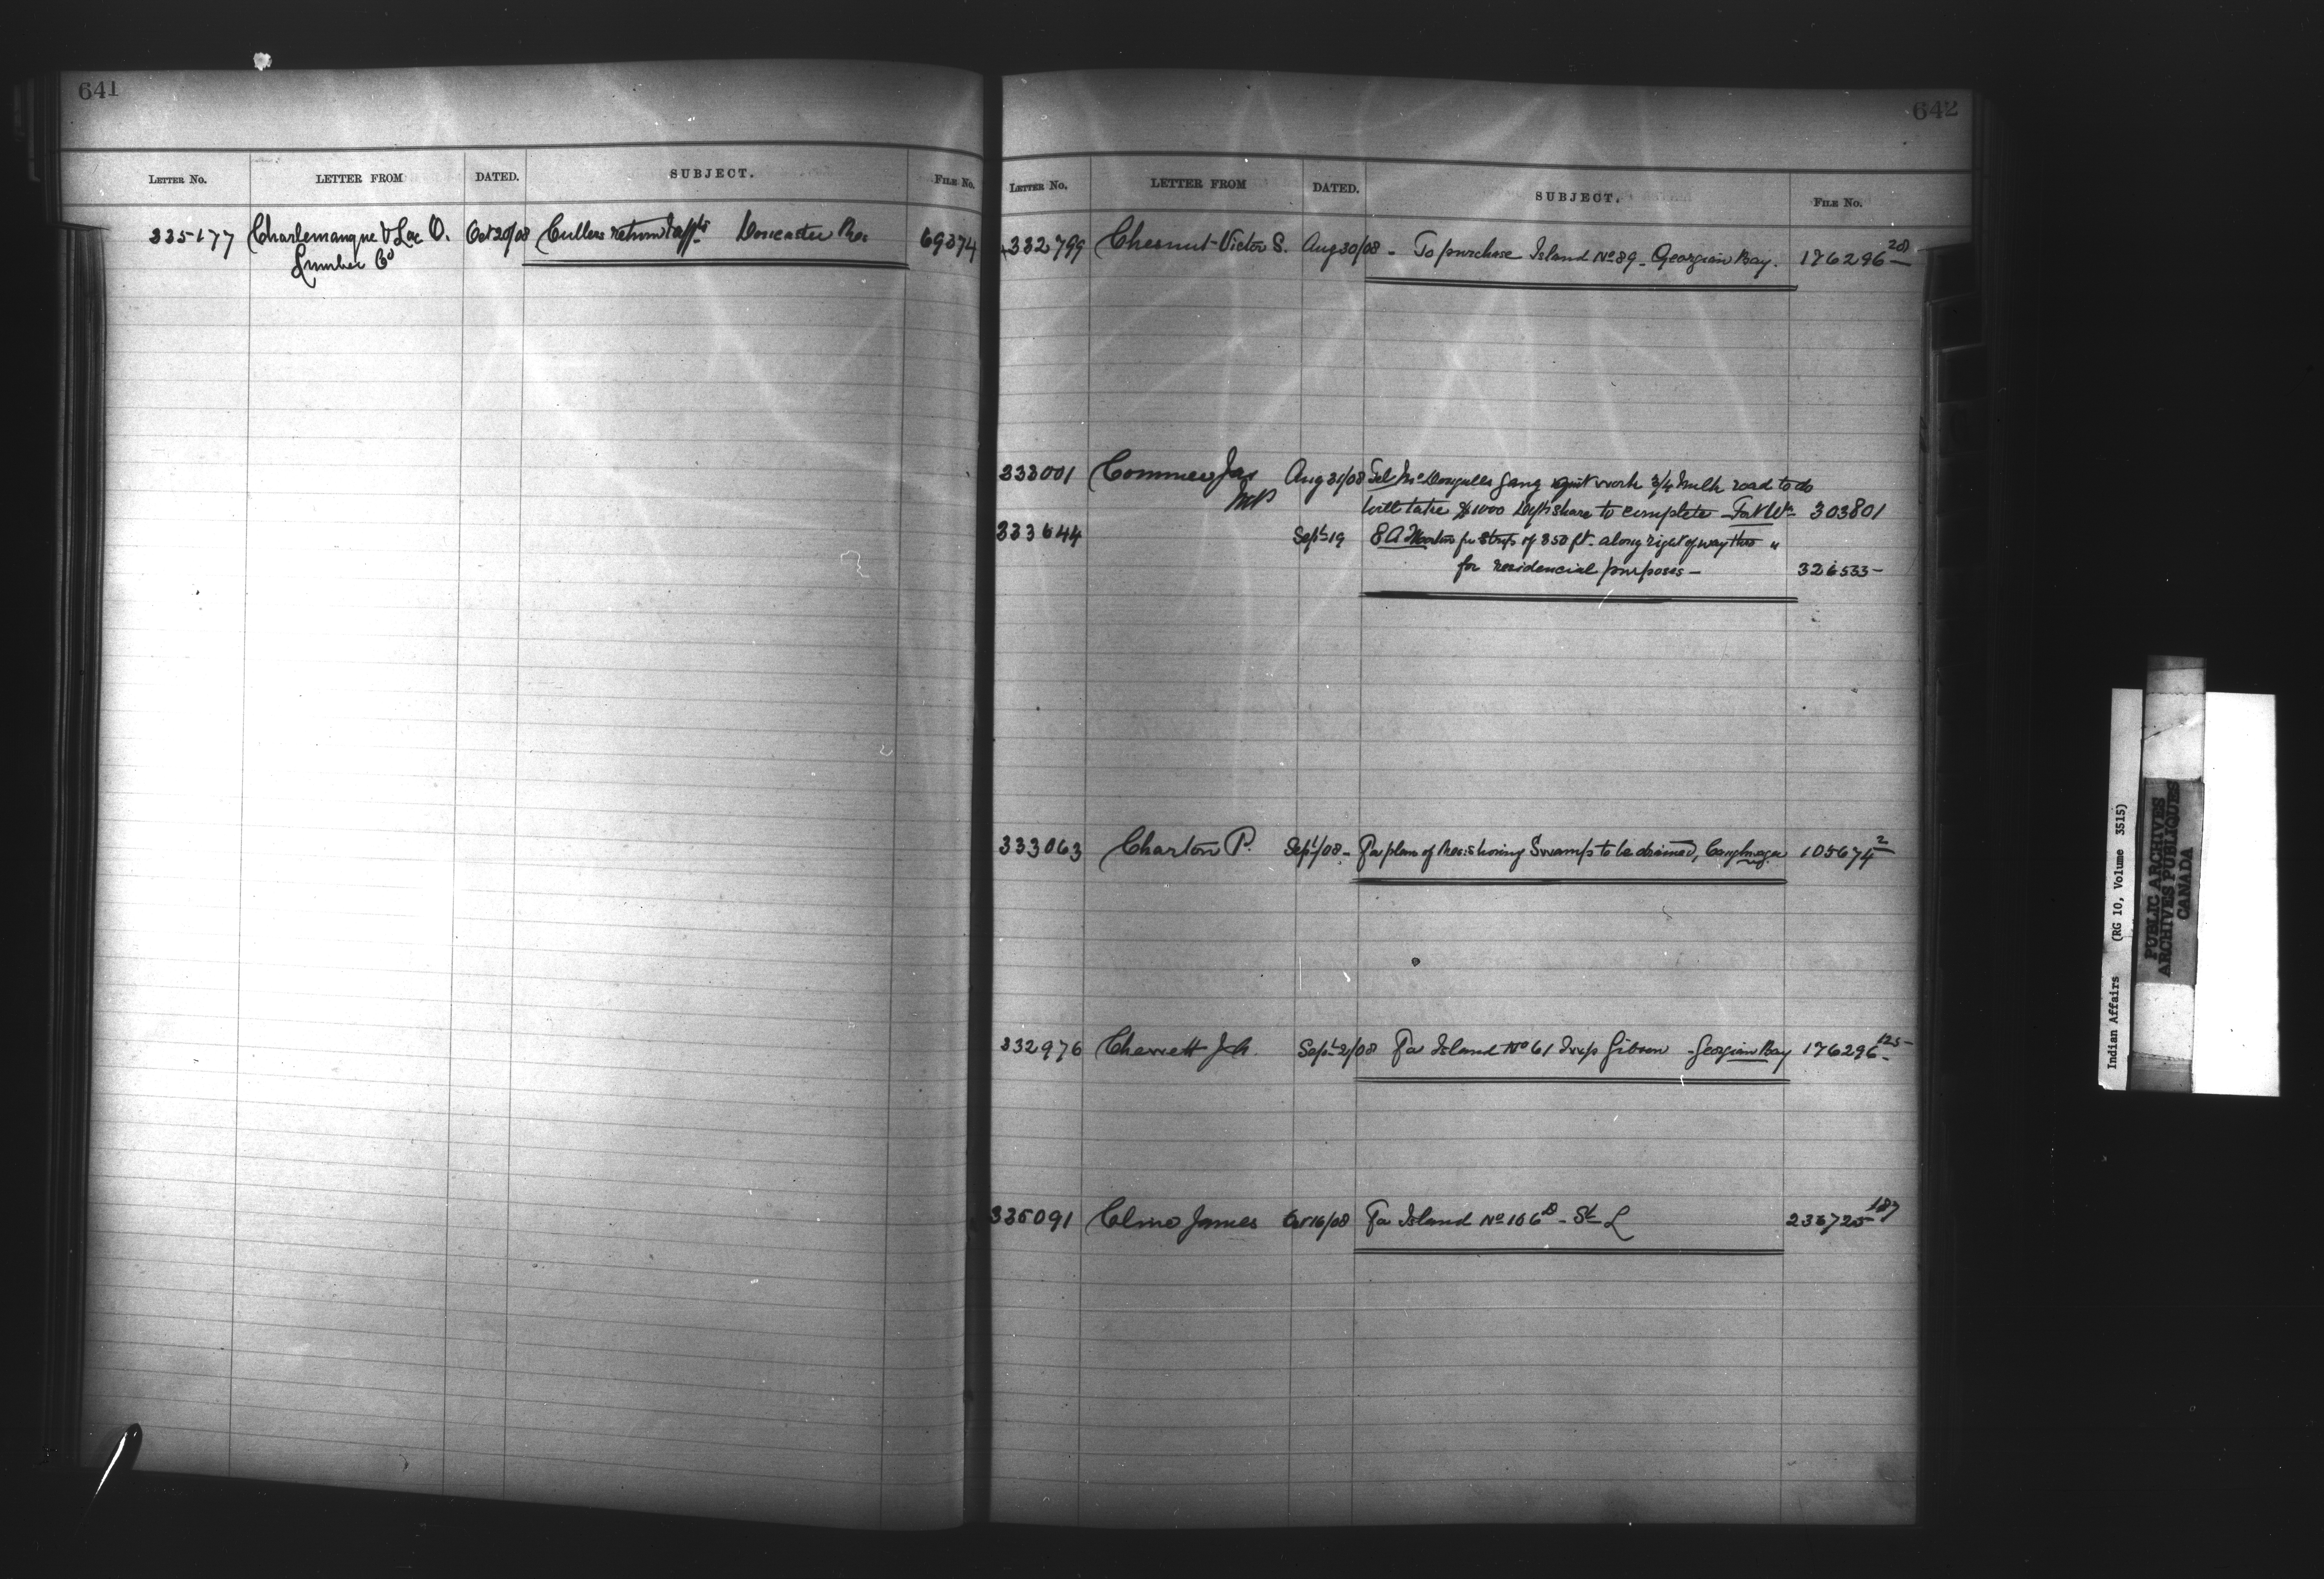 641
LETTER NO. LETTER FROM DATED. SUBJECT. FILE No.
335177 Charlemangue & Lac O. Oct 20/08 Cullers return & affts Doncaster Res 69374
Lumber Co
642
LETTER NO. LETTER FROM DATED. SUBJECT. FILE No.
332799 Chesnut Victor S. Aug 30/08 - To purchase Island No 89 - Georgian Bay. 176296 28
333001 Conmee Jas Aug 31/08 Tel McDougalls gang quit work 3/4 mile road to do
MP will take $1000 Depts share to complete - Fort Wm 303801
333644 Sept 19 E A Morton for strip of 350 ft. along right of way thro "
for residencial purposes - 326533 -
333063 Charton P. Sept 1/08 - For plan of Res. shoring Swamp to be drained, Caughnaga 105674 2
332976 Chewett J.A. Sept 2/08 For Island No 61 Twp Gibson - Georgian Bay 176296 125 -
335091 Cline James Oct 16/08 For Island No 106 B - St L 235725 187
Indian Affairs (RG 10, Volume 3515)
PUBLIC ARCHIVES
ARCHIVES PUBLIQUES
CANADA